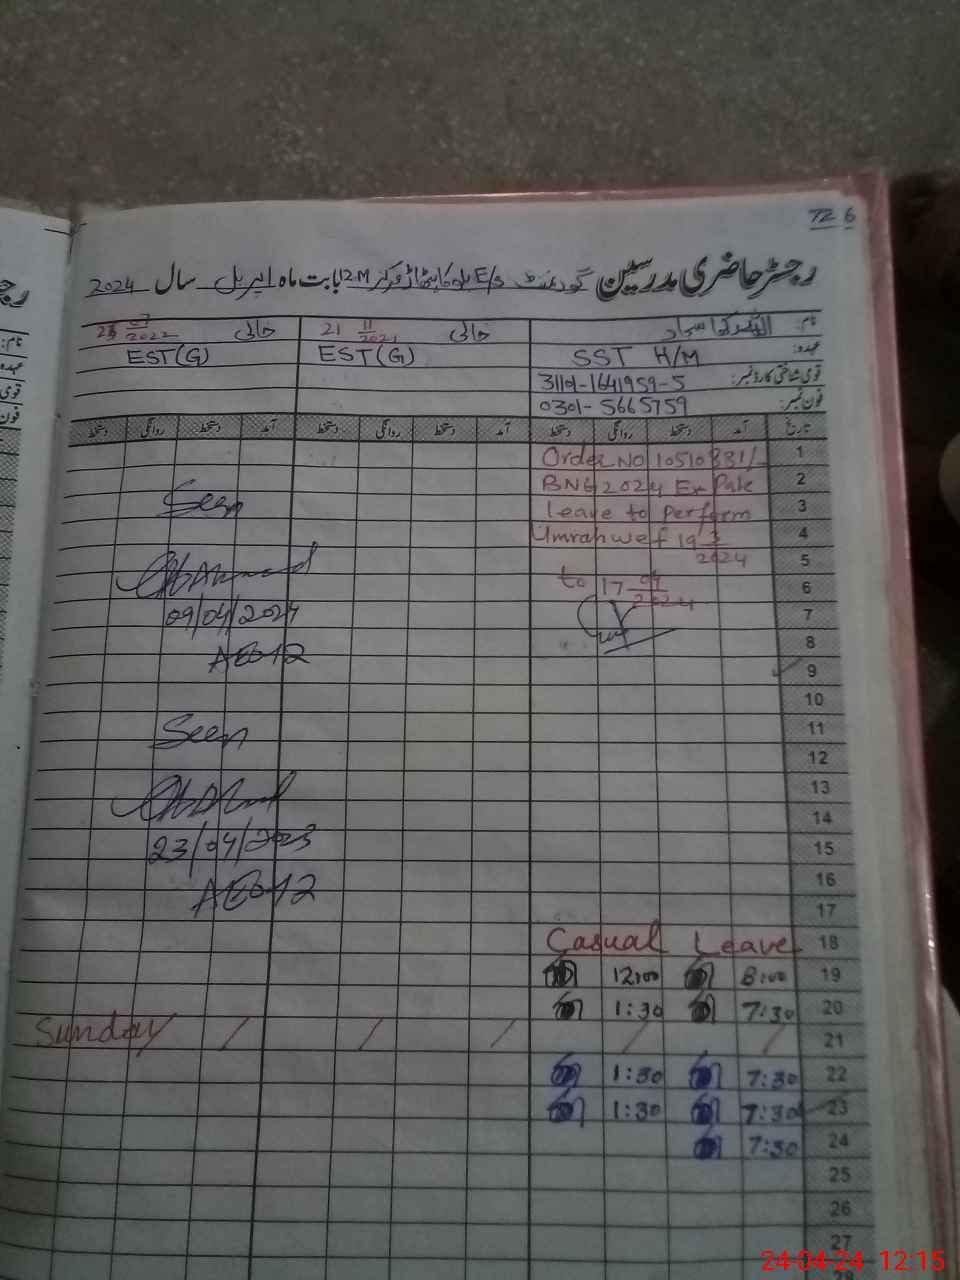 72 6
رجسٹر حاضری مدرسین گورنمنٹ E/S 12.M بابت ماہ اپریل سال 2024
نام:
خالی 21 11/2021
خالی 07/2022
عہدہ: SST H/M
EST(G)
EST(G)
قومی شناختی کارڈ نمبر: 31101-1641959-5
فون نمبر: 0301-5665759
تاریخ آمد دستخط روانگی دستخط آمد دستخط روانگی دستخط آمد دستخط روانگی دستخط
1 Order No 10510831/-
2 BNG 2024 Ex Pak
3 Leave to Perform
4 Umrah wef 19 3/2024
5
6 to 17 04/2024
7
8
9
10
11
12
13
14
15
16
17
Seen
09/04/2024
AEO 12
Seen
23/04/2023
AEO 12
18 Casual Leave
19 8:00 12:00
20 7:30 1:30
21 Sunday
22 7:30 1:30
23 7:30 1:30
24 7:30
25
26
27
24-04-24 12:15